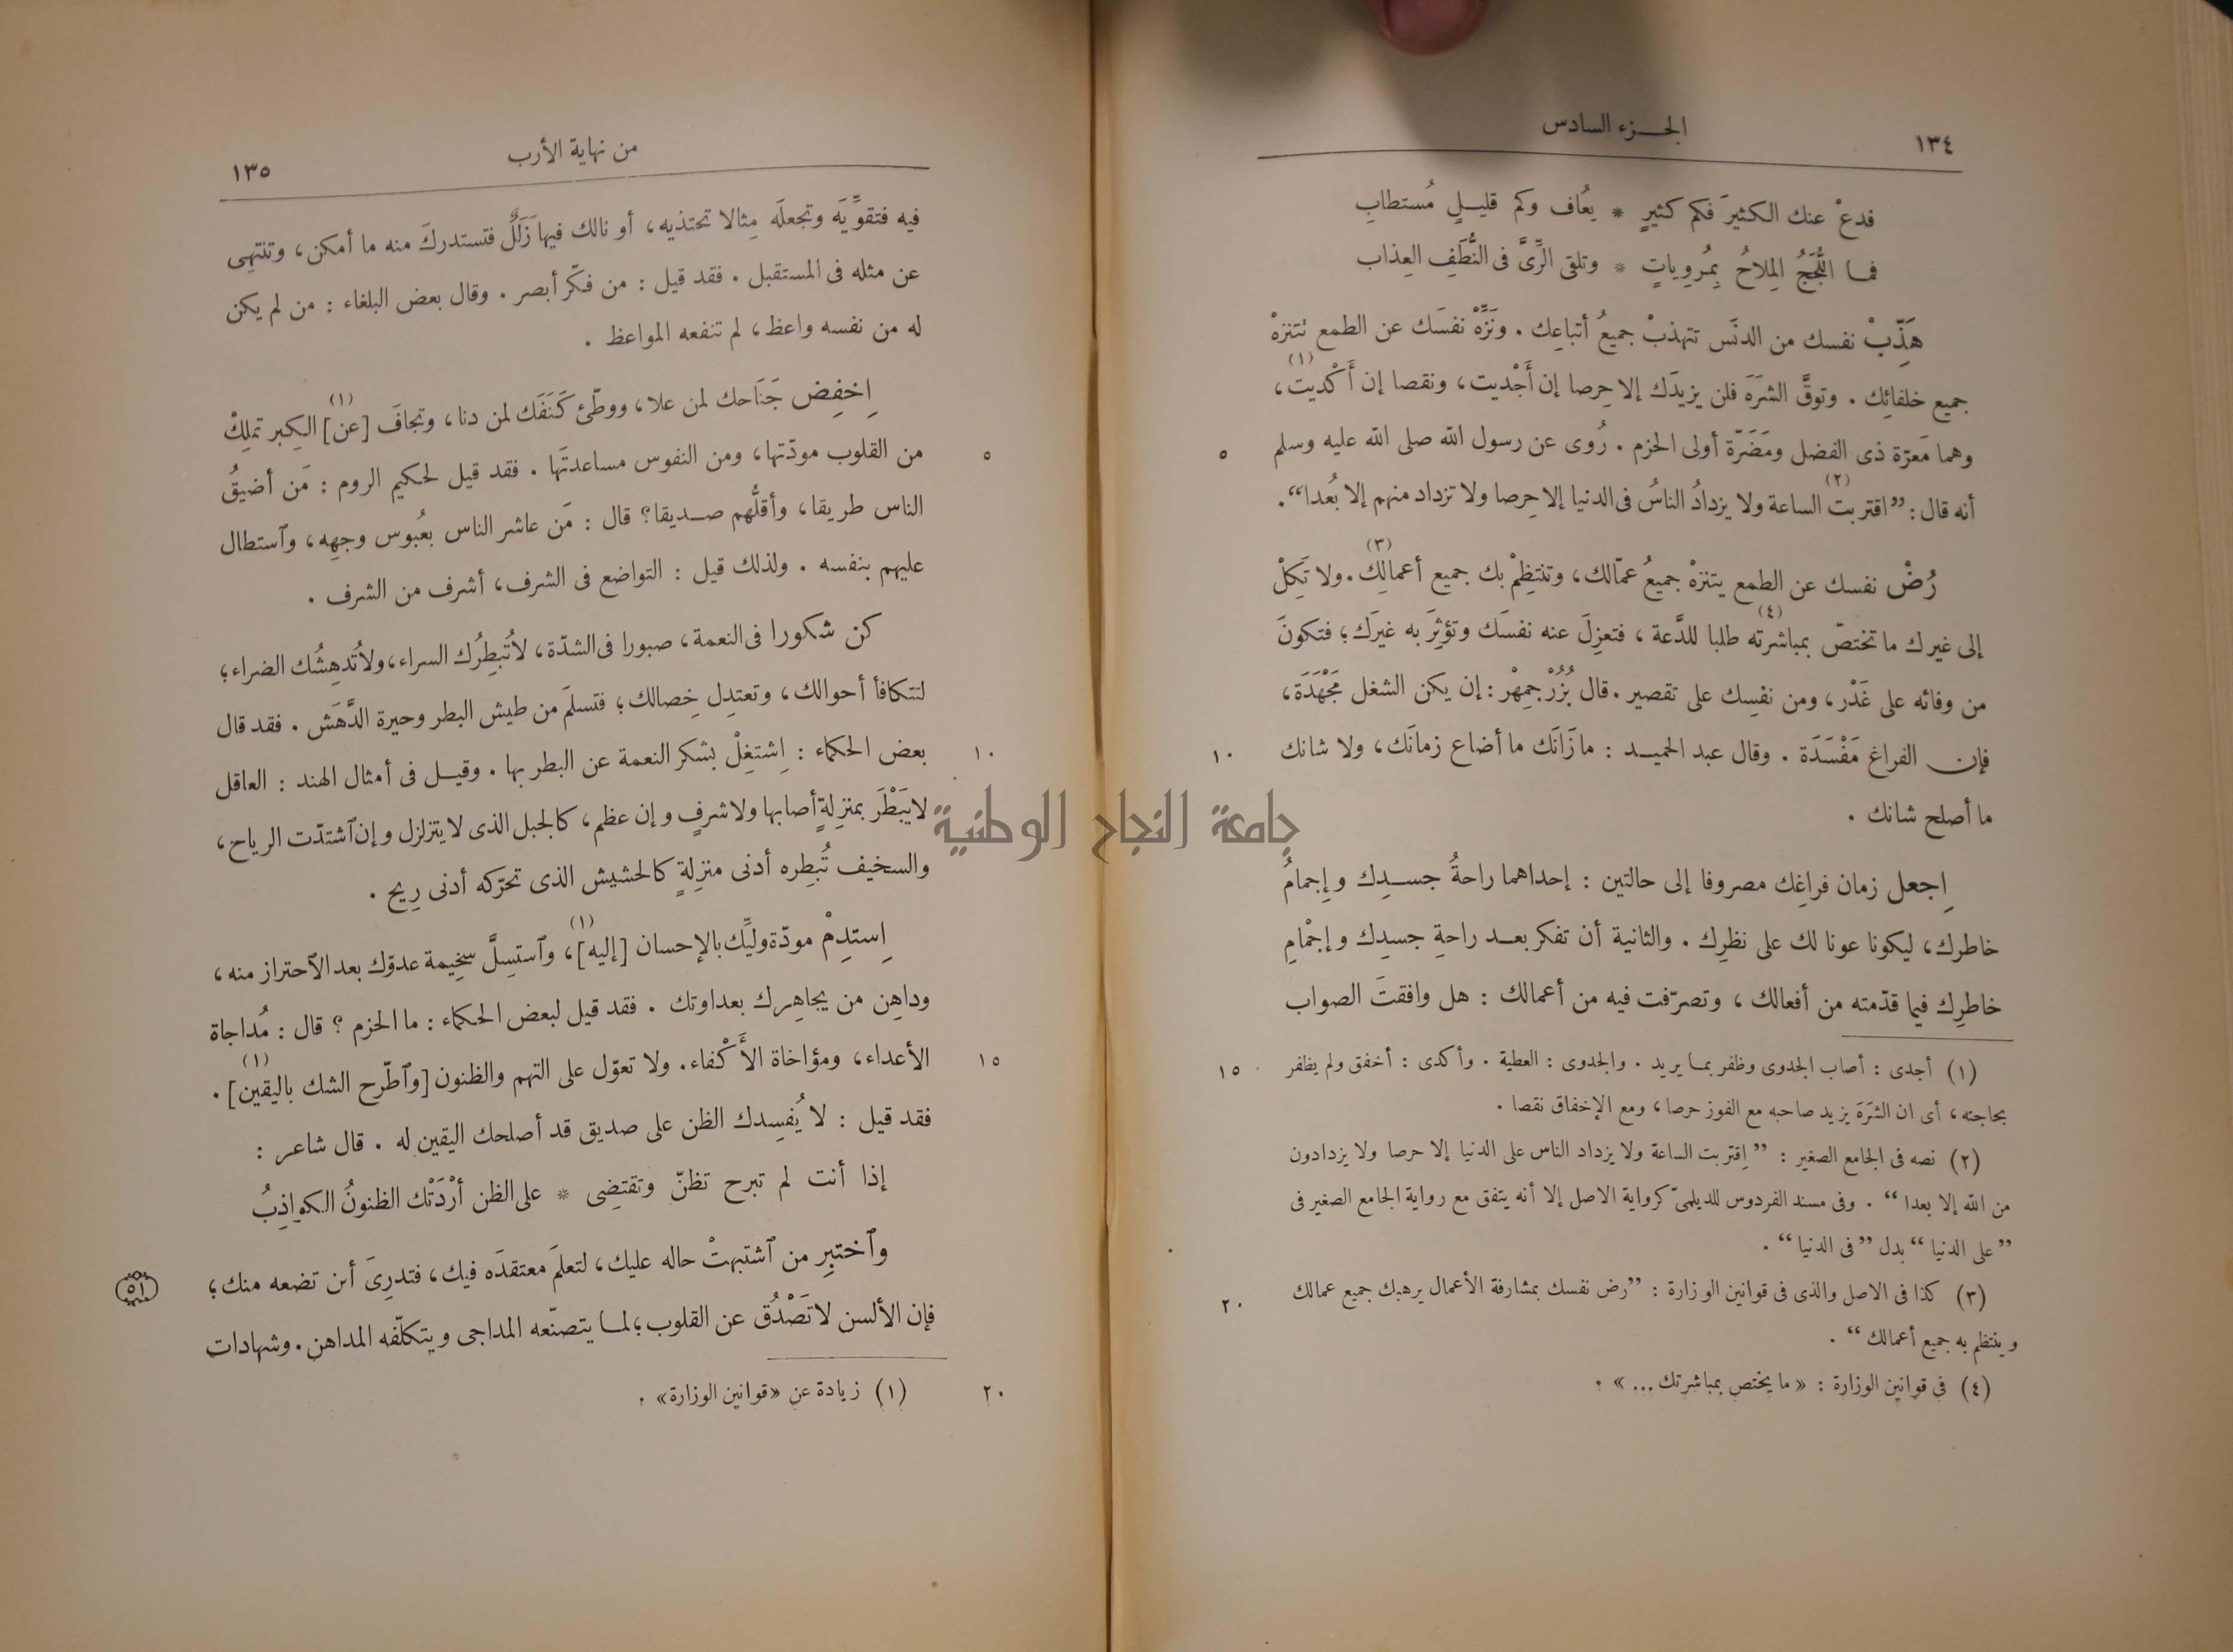 ١٣٤
الجزء السادس
فدعْ عنك الكثيرَ فكم كثيرٍ * يعُاف وكم قليلٍ مُستطابِ
فما اللُّججُ المِلاحُ بِمُروِياتٍ * وتلقى الرِّىَّ فى النُّطَفِ العِذاب
هَذِّبْ نفسك من الدنَس تتهذبْ جميعُ أتباعِك . ونَزِّهْ نفسَك عن الطمع تتنزهْ
جميع خلفائِك . وتوقَّ الشرَهَ فلن يزيدَك إلا حِرصا إن أَجْديت، ونقصا إن أَكْديت (١)،
وهما مَعرّة ذى الفضل ومَضَرّة أولى الحزم . رُوى عن رسول الله صلى الله عليه وسلم ٥
أنه قال : ”اقتربت (٢) الساعة ولا يزدادُ الناسُ فى الدنيا إلا حِرصا ولا تزداد منهم إلا بُعدا“.
رُضْ نفسك عن الطمع يتنزهْ جميعُ عمّالك، وتنتظِمْ بك جميع أعمالِك (٣). ولا تَكِلْ
إلى غيرك ما تختصّ بمباشرته (٤) طلبا للدَّعة ، فتعزِلَ عنه نفسَك وتؤثِرَ به غيرَك؛ فتكونَ
من وفائه على غَدْر، ومن نفسِك على تقصير . قال بُزُرْجمِهْر : إن يكن الشغل مَجْهَدَة،
فإن الفراغ مَفْسَدَة . وقال عبد الحميد : ما زَانَك ما أضاع زمانَك، ولا شانك ١٠
ما أصلح شانك .
اِجعل زمان فراغِك مصروفا إلى حالتين : إحداهما راحةُ جسدِك وإجمامُ
خاطرك، ليكونا عونا لك على نظرِك . والثانية أن تفكر بعد راحةِ جسدِك وإجمْامِ
خاطرِك فيما قدّمته من أفعالك ، وتصرّفت فيه من أعمالك : هل وافقتَ الصواب
(١) أجدى : أصاب الجدوى وظفر بما يريد . والجدوى : العطية . وأكدى : أخفق ولم يظفر ١٥
بحاجته، أى ان الشرَهَ يزيد صاحبه مع الفوز حرصا، ومع الإخفاق نقصا .
(٢) نصه فى الجامع الصغير : ”اِقتربت الساعة ولا يزداد الناس على الدنيا إلا حرصا ولا يزدادون
من الله إلا بعدا“ . وفى مسند الفردوس للديلمىّ كرواية الاصل إلا أنه يتفق مع رواية الجامع الصغير فى
”على الدنيا“ بدل ”فى الدنيا“ .
(٣) كذا فى الاصل والذى فى قوانين الوزارة : ”رض نفسك بمشارفة الأعمال يرهبك جميع عمالك ٢٠
وينتظم به جميع أعمالك“ .
(٤) فى قوانين الوزارة : «ما يختص بمباشرتك ...» .
من نهاية الأرب
١٣٥
فيه فتقوِّيَه وتجعلَه مِثالا تحتذيه، أو نالك فيها زَلَلٌ فتستدركَ منه ما أمكن، وتنتهِى
عن مثله فى المستقبل . فقد قيل : من فكّر أبصر . وقال بعض البلغاء : من لم يكن
له من نفسه واعظ، لم تنفعه المواعظ .
اِخفِض جَنَاحك لمن علا، ووطّئ كَنَفَك لمن دنا، وتجافَ [عن] (١) الكِبر تملِكْ
من القلوب مودّتها، ومن النفوس مساعدتَها . فقد قيل لحكيم الروم : مَن أضيقُ ٥
الناس طريقا، وأقلُّهم صديقا؟ قال : مَن عاشر الناس بعُبوس وجهِه، وٱستطال
عليهم بنفسه . ولذلك قيل : التواضع فى الشرف، أشرف من الشرف .
كن شكورا فى النعمة، صبورا فى الشدّة، لا تُبطِرُك السراء، ولا تُدهِشُك الضراء؛
لتتكافأ أحوالك، وتعتدِل خِصالك؛ فتسلَم من طيش البطر وحيرة الدَّهَش . فقد قال
بعض الحكماء : اِشتغِلْ بشكر النعمة عن البطر بها . وقيل فى أمثال الهند : العاقل ١٠
لا يَبْطَر بمنزلةٍ أصابها ولا شرفٍ وإن عظم، كالجبل الذى لا يتزلزل وإن ٱشتدّت الرياح،
والسخيف تُبطِره أدنى منزِلةٍ كالحشيش الذى تحرّكه أدنى رِيح .
اِستدِمْ مودّة وليِّك بالإحسان [إليه] (١)، وٱستسِلَّ سخِيمة عدوّك بعد الٱحتراز منه،
وداهِن من يجاهِرك بعداوتك . فقد قيل لبعض الحكماء : ما الحزم ؟ قال : مُداجاة
الأعداء، ومؤاخاة الأَكْفاء. ولا تعوّل على التهم والظنون [وٱطّرح الشك باليقين] (١) . ١٥
فقد قيل : لا يُفسِدك الظن على صديق قد أصلحك اليقين له . قال شاعر :
إذا أنت لم تبرح تظنّ وتقتضِى * على الظن أرْدَتْك الظنونُ الكواذِبُ
وٱختبِرِ من ٱشتبهتْ حاله عليك، لتعلَم معتقدَه فيك، فتدرِىَ أين تضعه منك؛
٥١
فإن الألسن لا تَصْدُق عن القلوب؛ لما يتصنّعه المداجى ويتكلّفه المداهن. وشهادات
(١) زيادة عن «قوانين الوزارة» . ٢٠
جامعة النجاح الوطنية